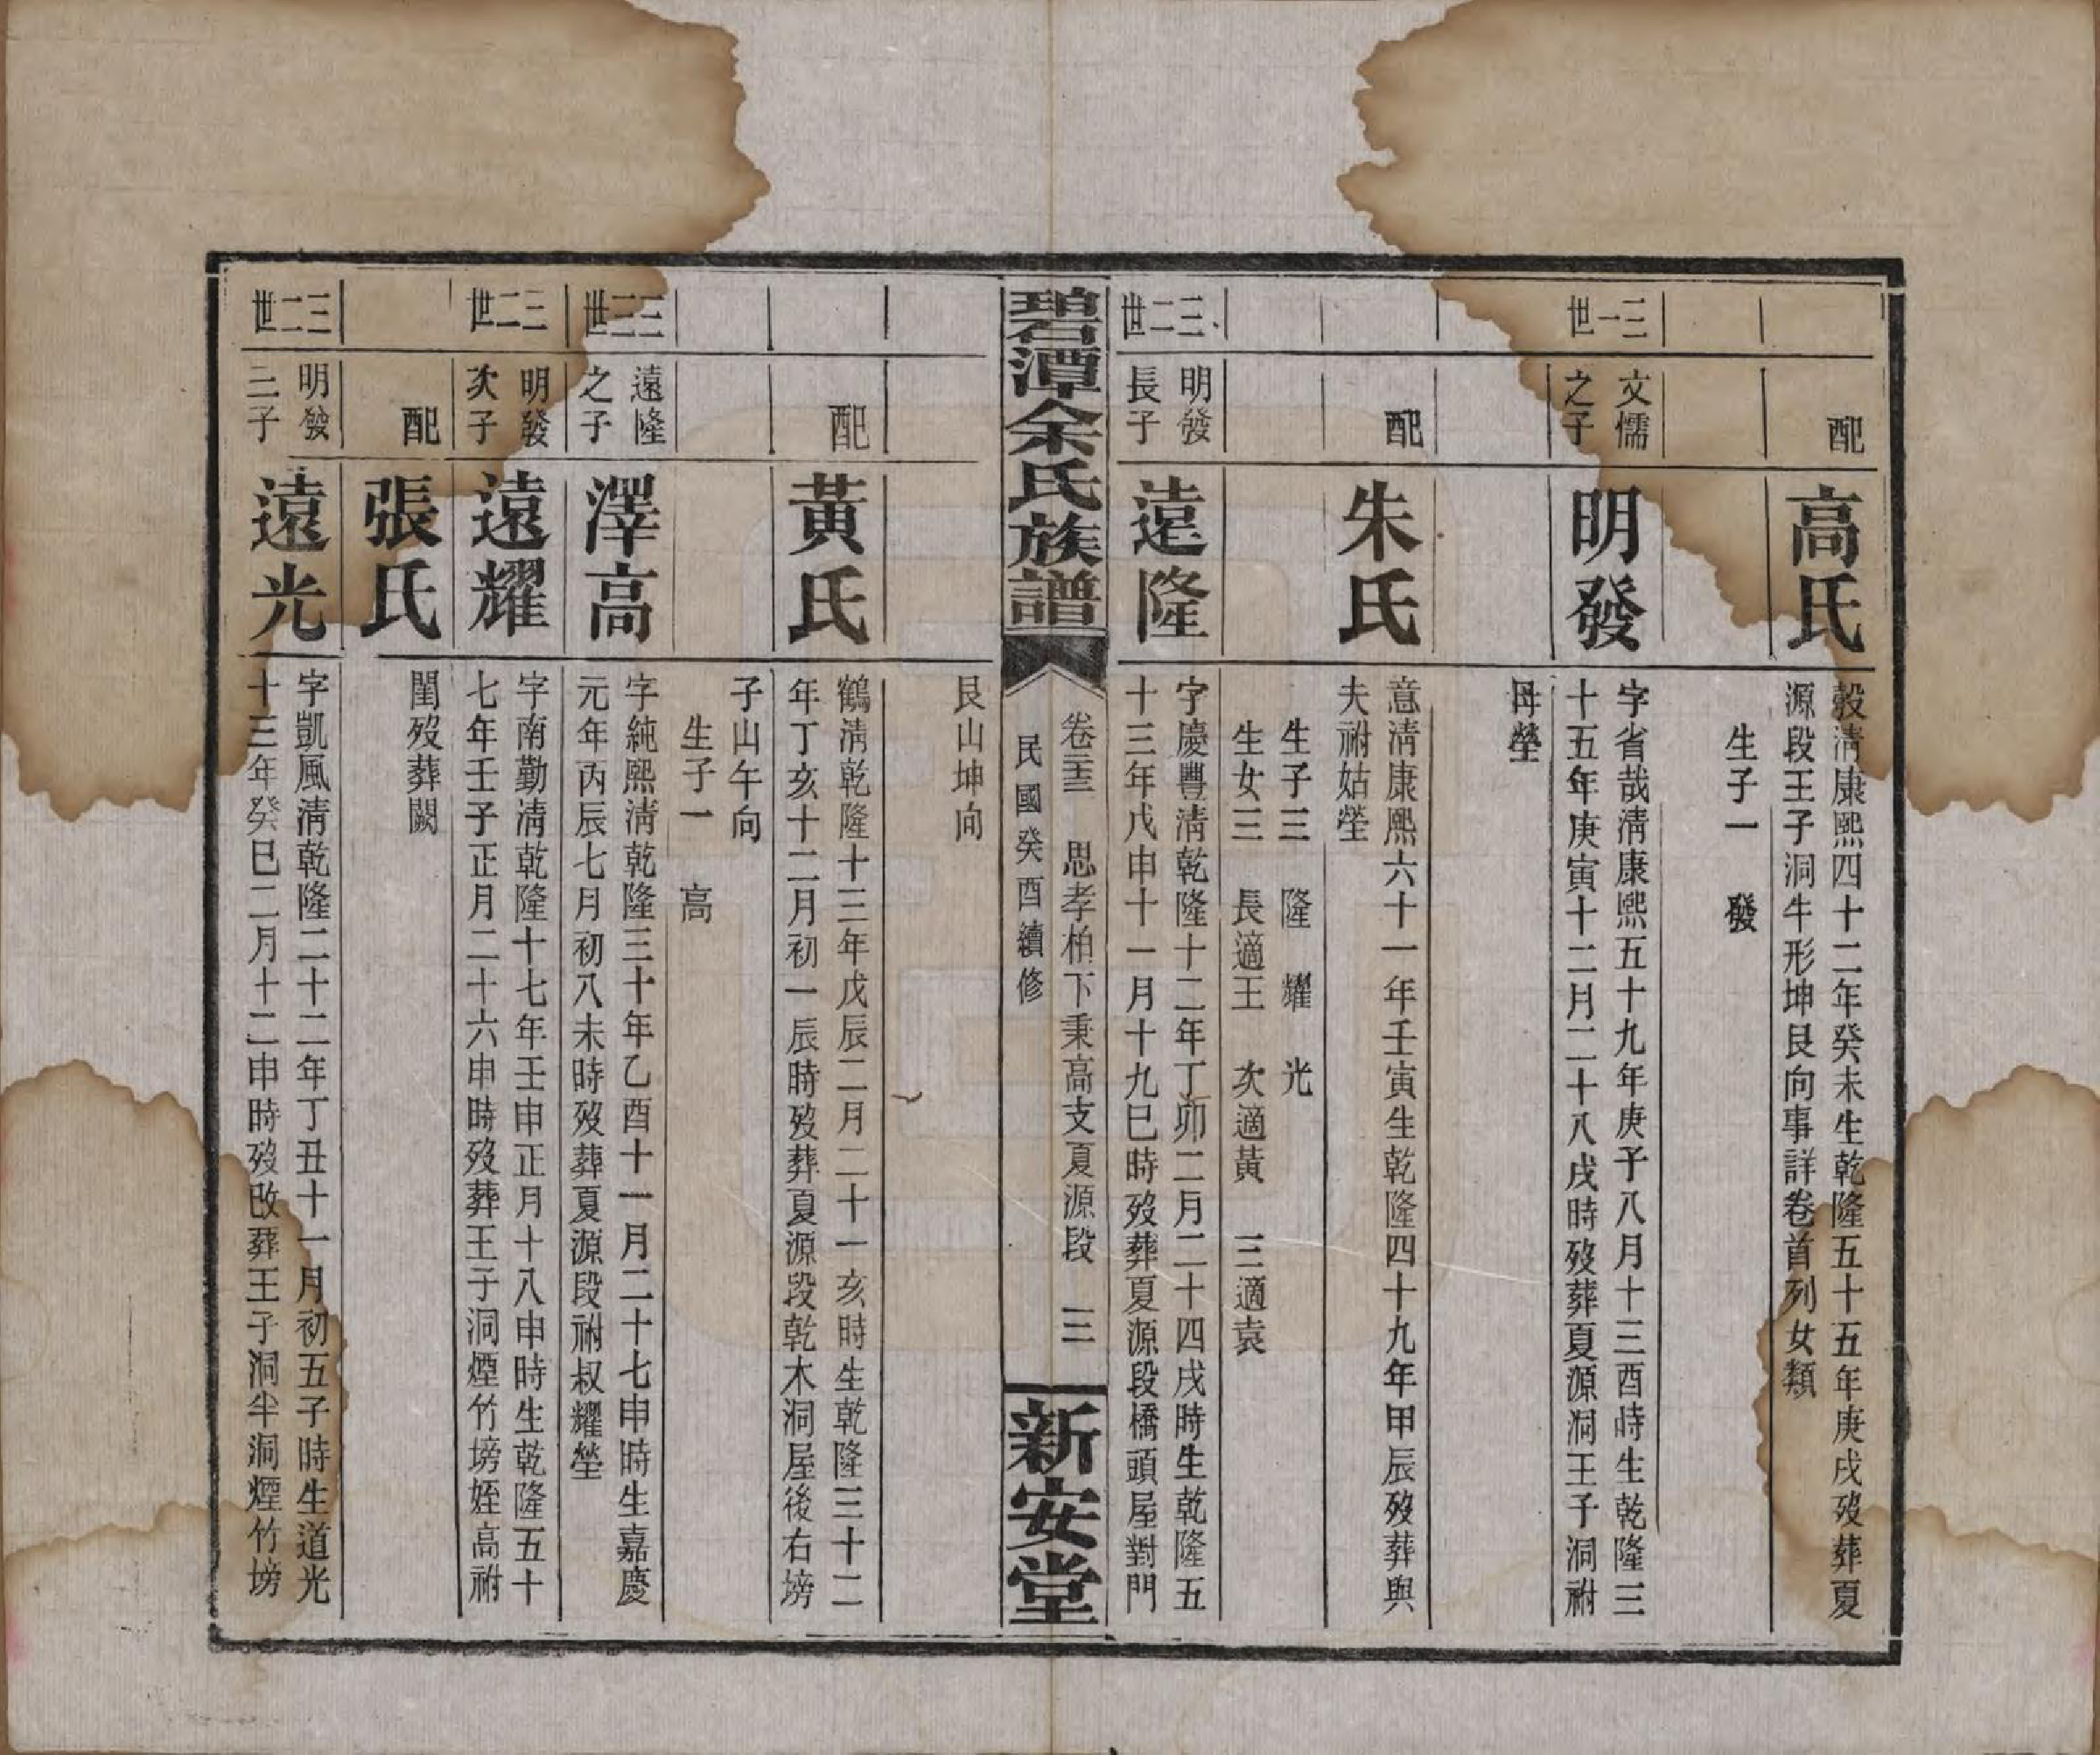 配
高氏
穀清康熙四十二年癸未生乾隆五十五年庚戌歿葬夏
源段王子洞牛形坤艮向事詳卷首列女類
生子一　發
三一世
文儒
之子
明發
字省哉清康熙五十九年庚子八月十三酉時生乾隆三
十五年庚寅十二月二十八戌時歿葬夏源洞王子洞祔
母塋
配
朱氏
意清康熙六十一年壬寅生乾隆四十九年甲辰歿葬與
夫祔姑塋
生子三　隆　耀　光
生女三　長適王　次適黃　三適袁
三二世
明發
長子
遠隆
字慶豐清乾隆十二年丁卯二月二十四戌時生乾隆五
十三年戊申十一月十九巳時歿葬夏源段橋頭屋對門
碧潭余氏族譜
卷三　思孝柏下秉高支夏源段　三
民國癸酉續修
新安堂
艮山坤向
配
黃氏
鶴清乾隆十三年戊辰二月二十一亥時生乾隆三十二
年丁亥十二月初一辰時歿葬夏源段乾木洞屋後右塝
子山午向
生子一　高
三三世
遠隆
之子
澤高
字純熙清乾隆三十年乙酉十一月二十七申時生嘉慶
元年丙辰七月初八未時歿葬夏源段祔叔耀塋
三二世
明發
次子
遠耀
字南勤清乾隆十七年壬申正月十八申時生乾隆五十
七年壬子正月二十六申時歿葬王子洞煙竹塝姪高祔
配
張氏
閨歿葬闕
三二世
明發
三子
遠光
字凱風清乾隆二十二年丁丑十一月初五子時生道光
十三年癸巳二月十二申時歿改葬王子洞半洞煙竹塝